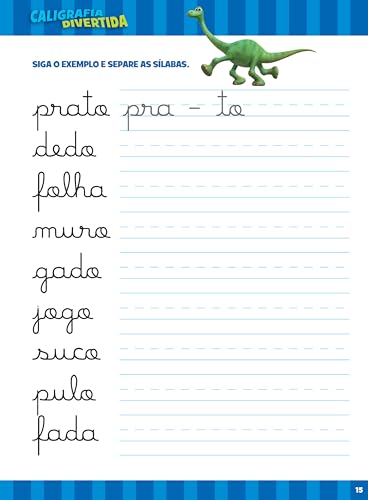 CALIGRAFIA
DIVERTIDA
SIGA O EXEMPLO E SEPARE AS SÍLABAS.
prato pra - to
dedo
folha
muro
gado
jogo
suco
pulo
fada
15